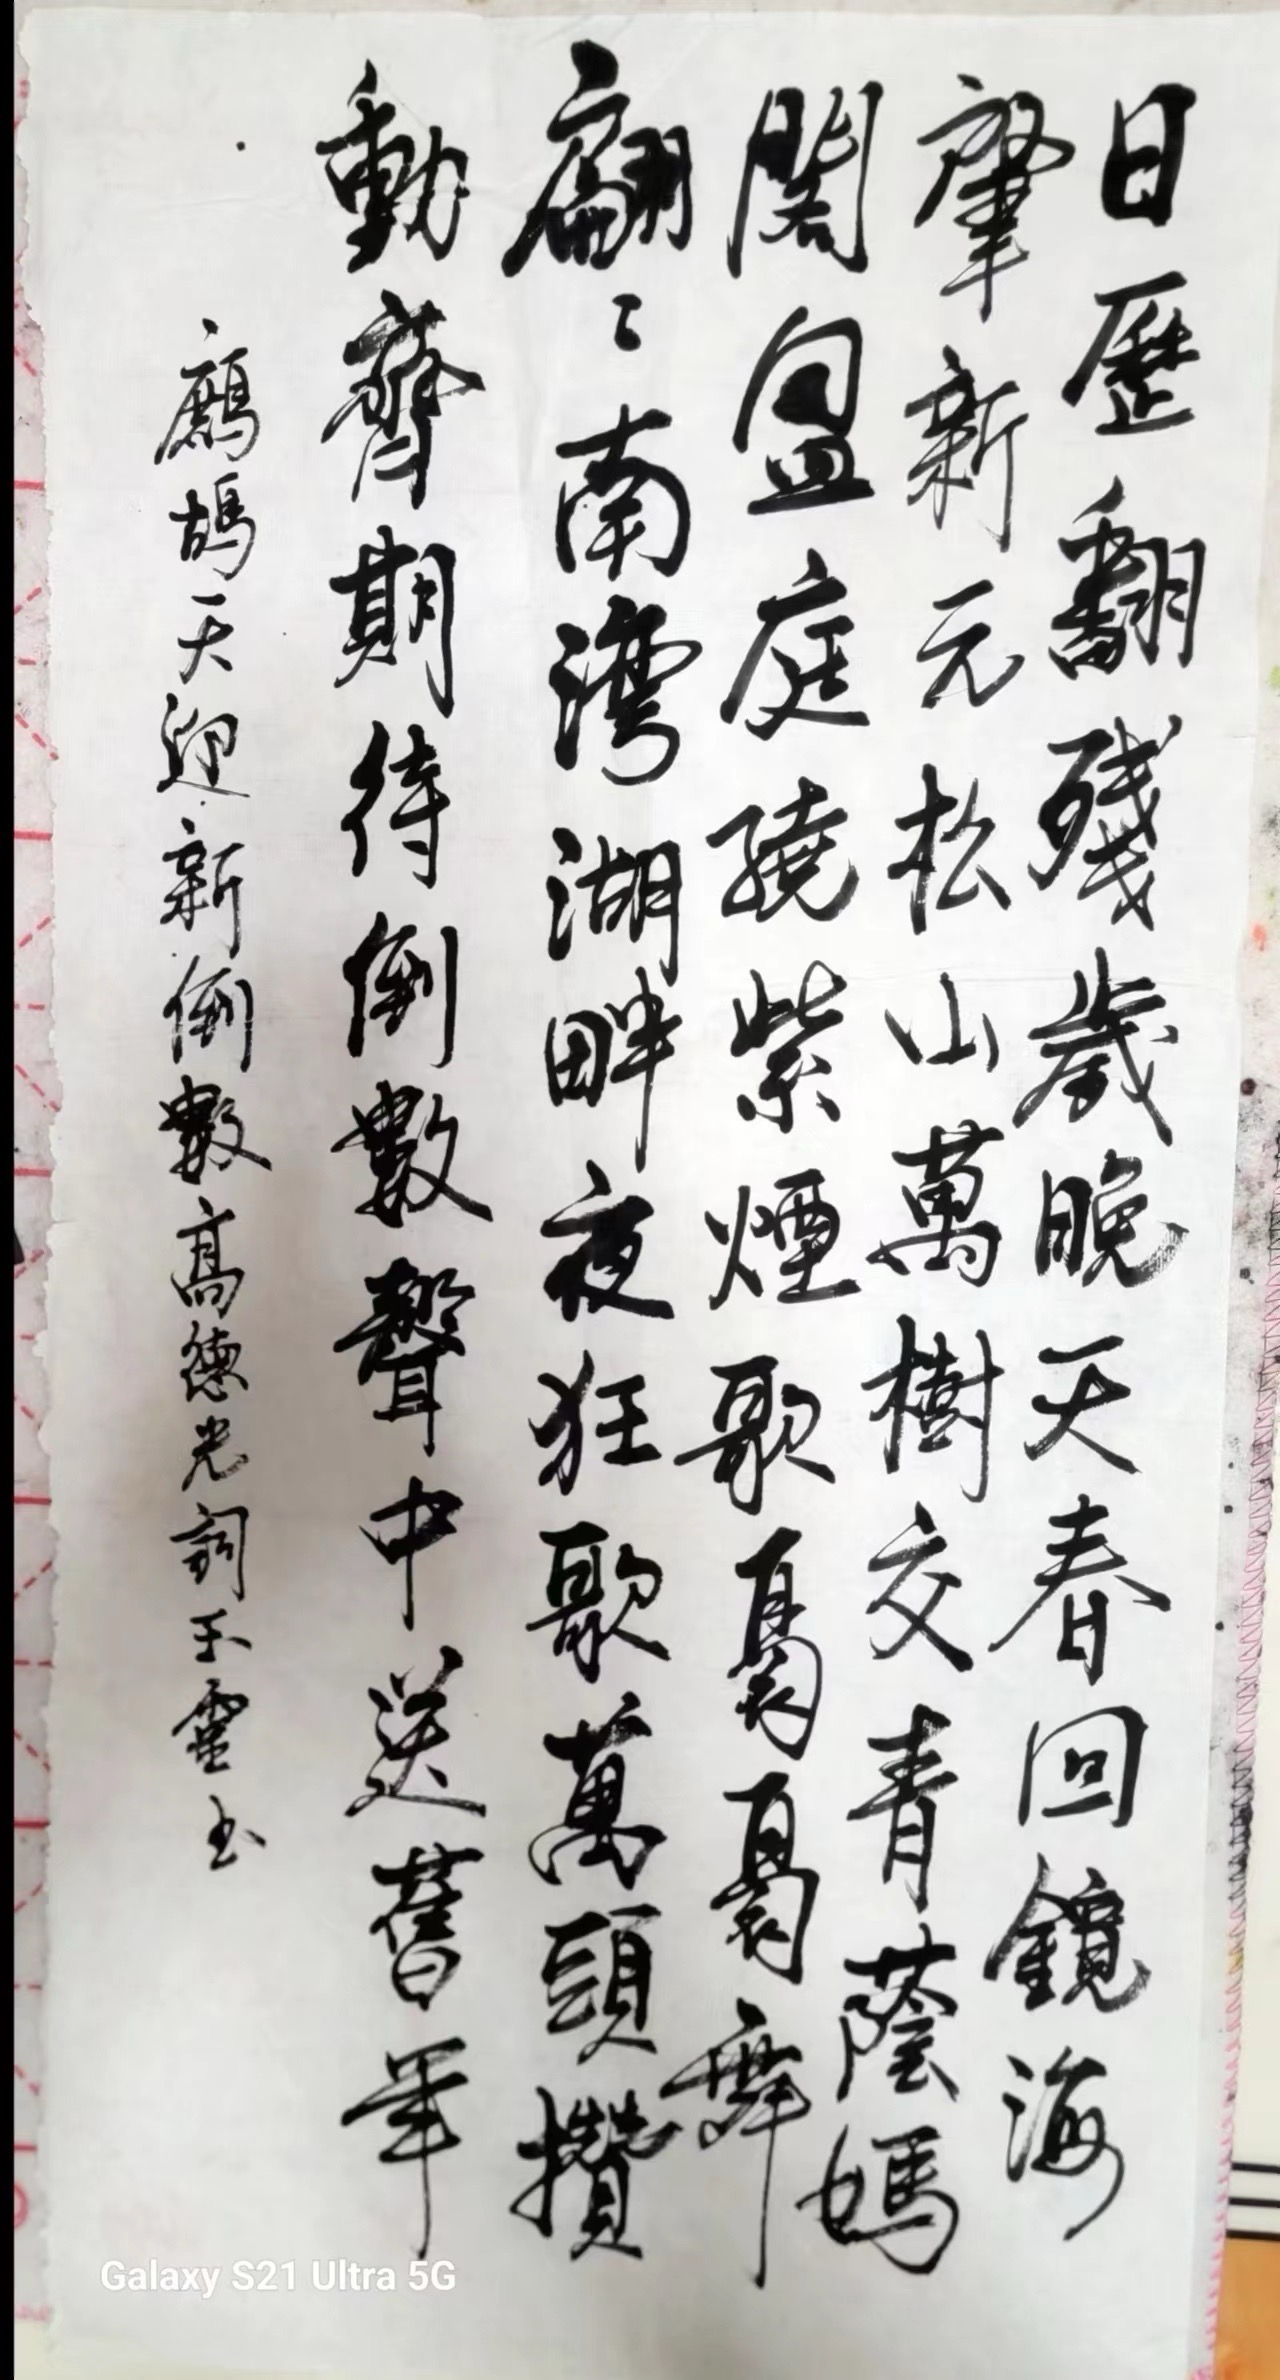 日歷翻殘歲晚天春回鏡海
肇新元松山萬樹交青蔭媽
閣盈庭繞紫煙歌裊裊舞
翩〻南灣湖畔夜狂歌萬頭攢
動齊期待倒數聲中送舊年
鷓鴣天迎新倒數高德光詞玉靈书
Galaxy S21 Ultra 5G